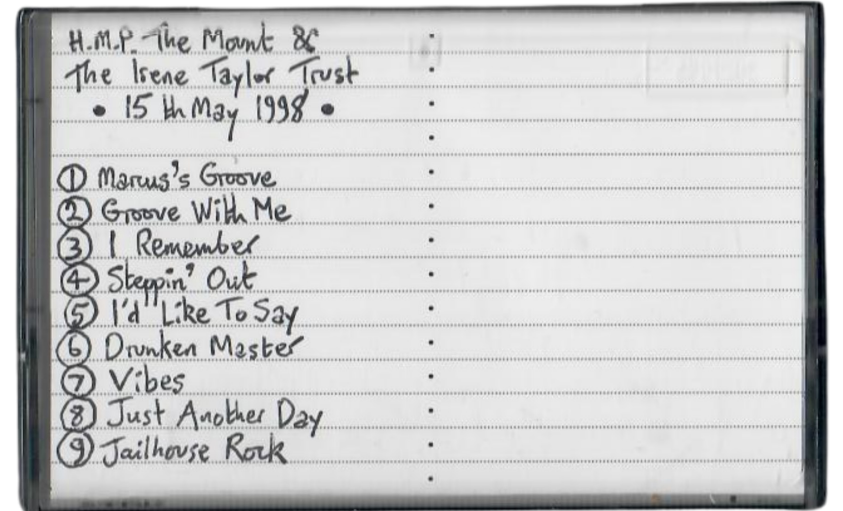 H.M.P. The Mount &
The Irene Taylor Trust
• 15th May 1998 •
① Marcus's Groove
② Groove With Me
③ I Remember
④ Steppin' Out
⑤ I'd Like To Say
⑥ Drunken Master
⑦ Vibes
⑧ Just Another Day
⑨ Jailhouse Rock